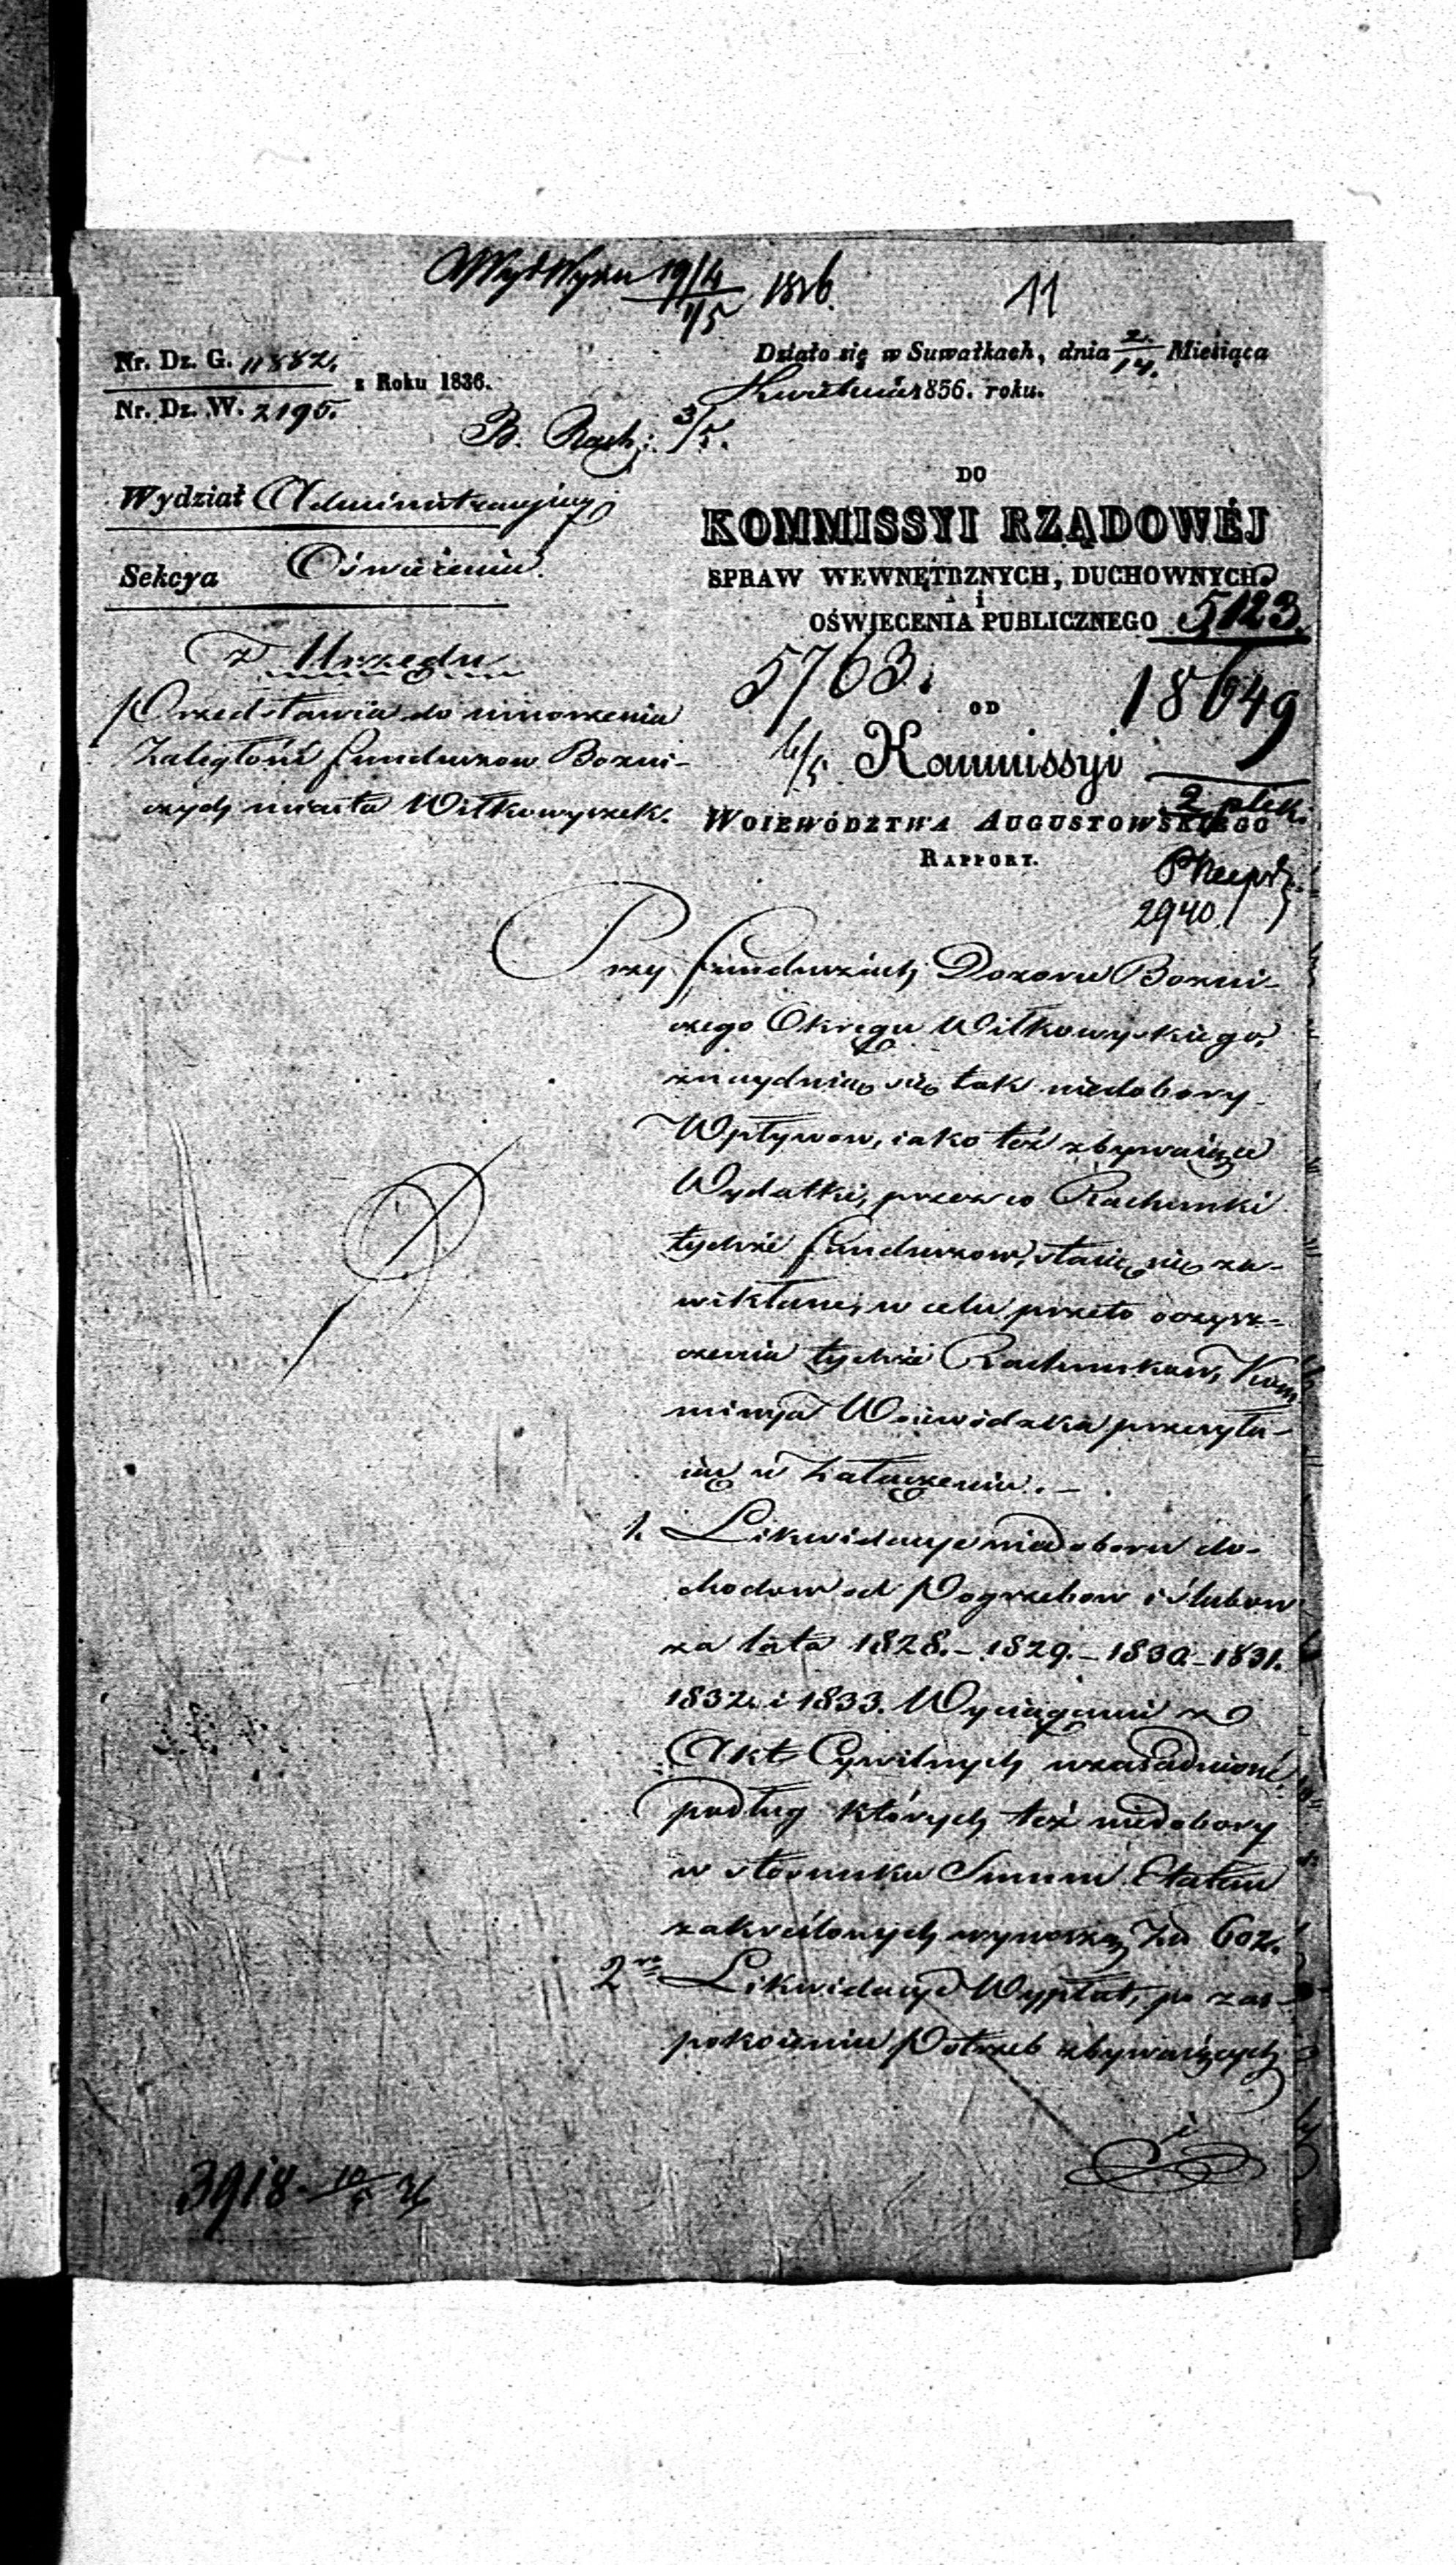 19/4 1/5 1836.
11
Nr. Dz. G. 11882.
z Roku 1836.
Nr. Dz. W. 2195.
Działo się w Suwałkach, dnia 2/14. Miesiąca
Kwietnia 1836. roku.
B. Rach: 3/5.
Wydział Administracyiny
Sekcya Oświecenia.
DO
KOMMISSYI RZĄDOWÉJ
SPRAW WEWNĘTRZNYCH, DUCHOWNYCH
i
OŚWIECENIA PUBLICZNEGO 5123.
5763.
18649
z Urzędu
Przedstawia do umorzenia
Zaległość funduszow Bożni-
czych miasta Wiłkowyszek.
OD
Kommissyi
2 plik.
WOIEWÓDZTWA AUGUSTOWSKIEGO
RAPPORT.
2940.
Przy funduszach Dozoru Bożni-
czego Okręgu Wiłkowyskiego,
znayduią się tak niedobory
Wpływow, iako też zbywaiące
Wydatki, przez co Rachunki
tychże funduszow, staią się za-
wikłane, w celu przeto oczysz-
czenia tychże Rachunkow, Kom
missya Woiewódzka przesyła-
iąc w Załączeniu. –
1. Likwidacye niedoboru do-
chodow od Pogrzebow i ślubow
za lata 1828. – 1829. – 1830 – 1831.
1832. i 1833. Wyciągami z
Akt Cywilnych uzasadnione
podług których też niedobory
w stosunku Summ Etatem
zakreślonych wynoszą Zło 602.
2re Likwidacye Wypłat, po zas-
pokoieniu Potrzeb zbywaiących
i
3918